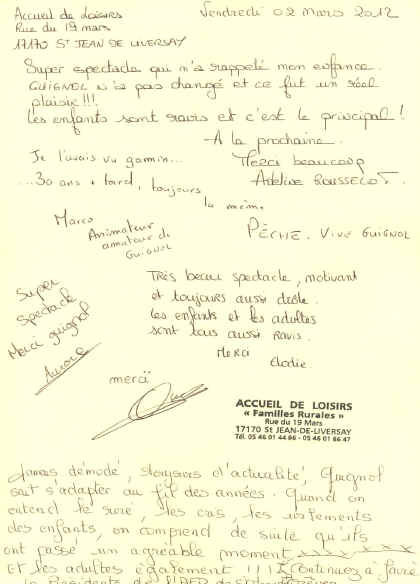 Accueil de Loisirs
Rue du 19 mars
17170 ST JEAN DE LIVERSAY
Vendredi 02 Mars 2012
Super spectacle qui m'a rappelé mon enfance.
GUIGNOL n'a pas changé et ce fut un réel
plaisir !!!
Les enfants sont ravis et c'est le principal !
A la prochaine.
Merci beaucoup
Adeline ROUSSELOT.
Je l'avais vu gamin...
...30 ans + tard, toujours
la même.
Marco
Animateur
amateur de
GUIGNOL
PÊCHE. VIVE GUIGNOL
Très beau spectacle, motivant
et toujours aussi drôle.
Les enfants et les adultes
sont tous aussi ravis.
Merci
Elodie.
Super
Spectacle
Merci guignol
Aurore
merci
ACCUEIL DE LOISIRS
« Familles Rurales »
Rue du 19 Mars
17170 St JEAN-DE-LIVERSAY
Tél. 05 46 01 44 86 - 05 46 01 86 47
Jamais démodé, toujours d'actualité, Guignol
sait s'adapter au fil des années. Quand on
entend le
des enfants, on comprend de suite qu'ils
ont passé un agréable moment
et les adultes également !!! Continuez à faire